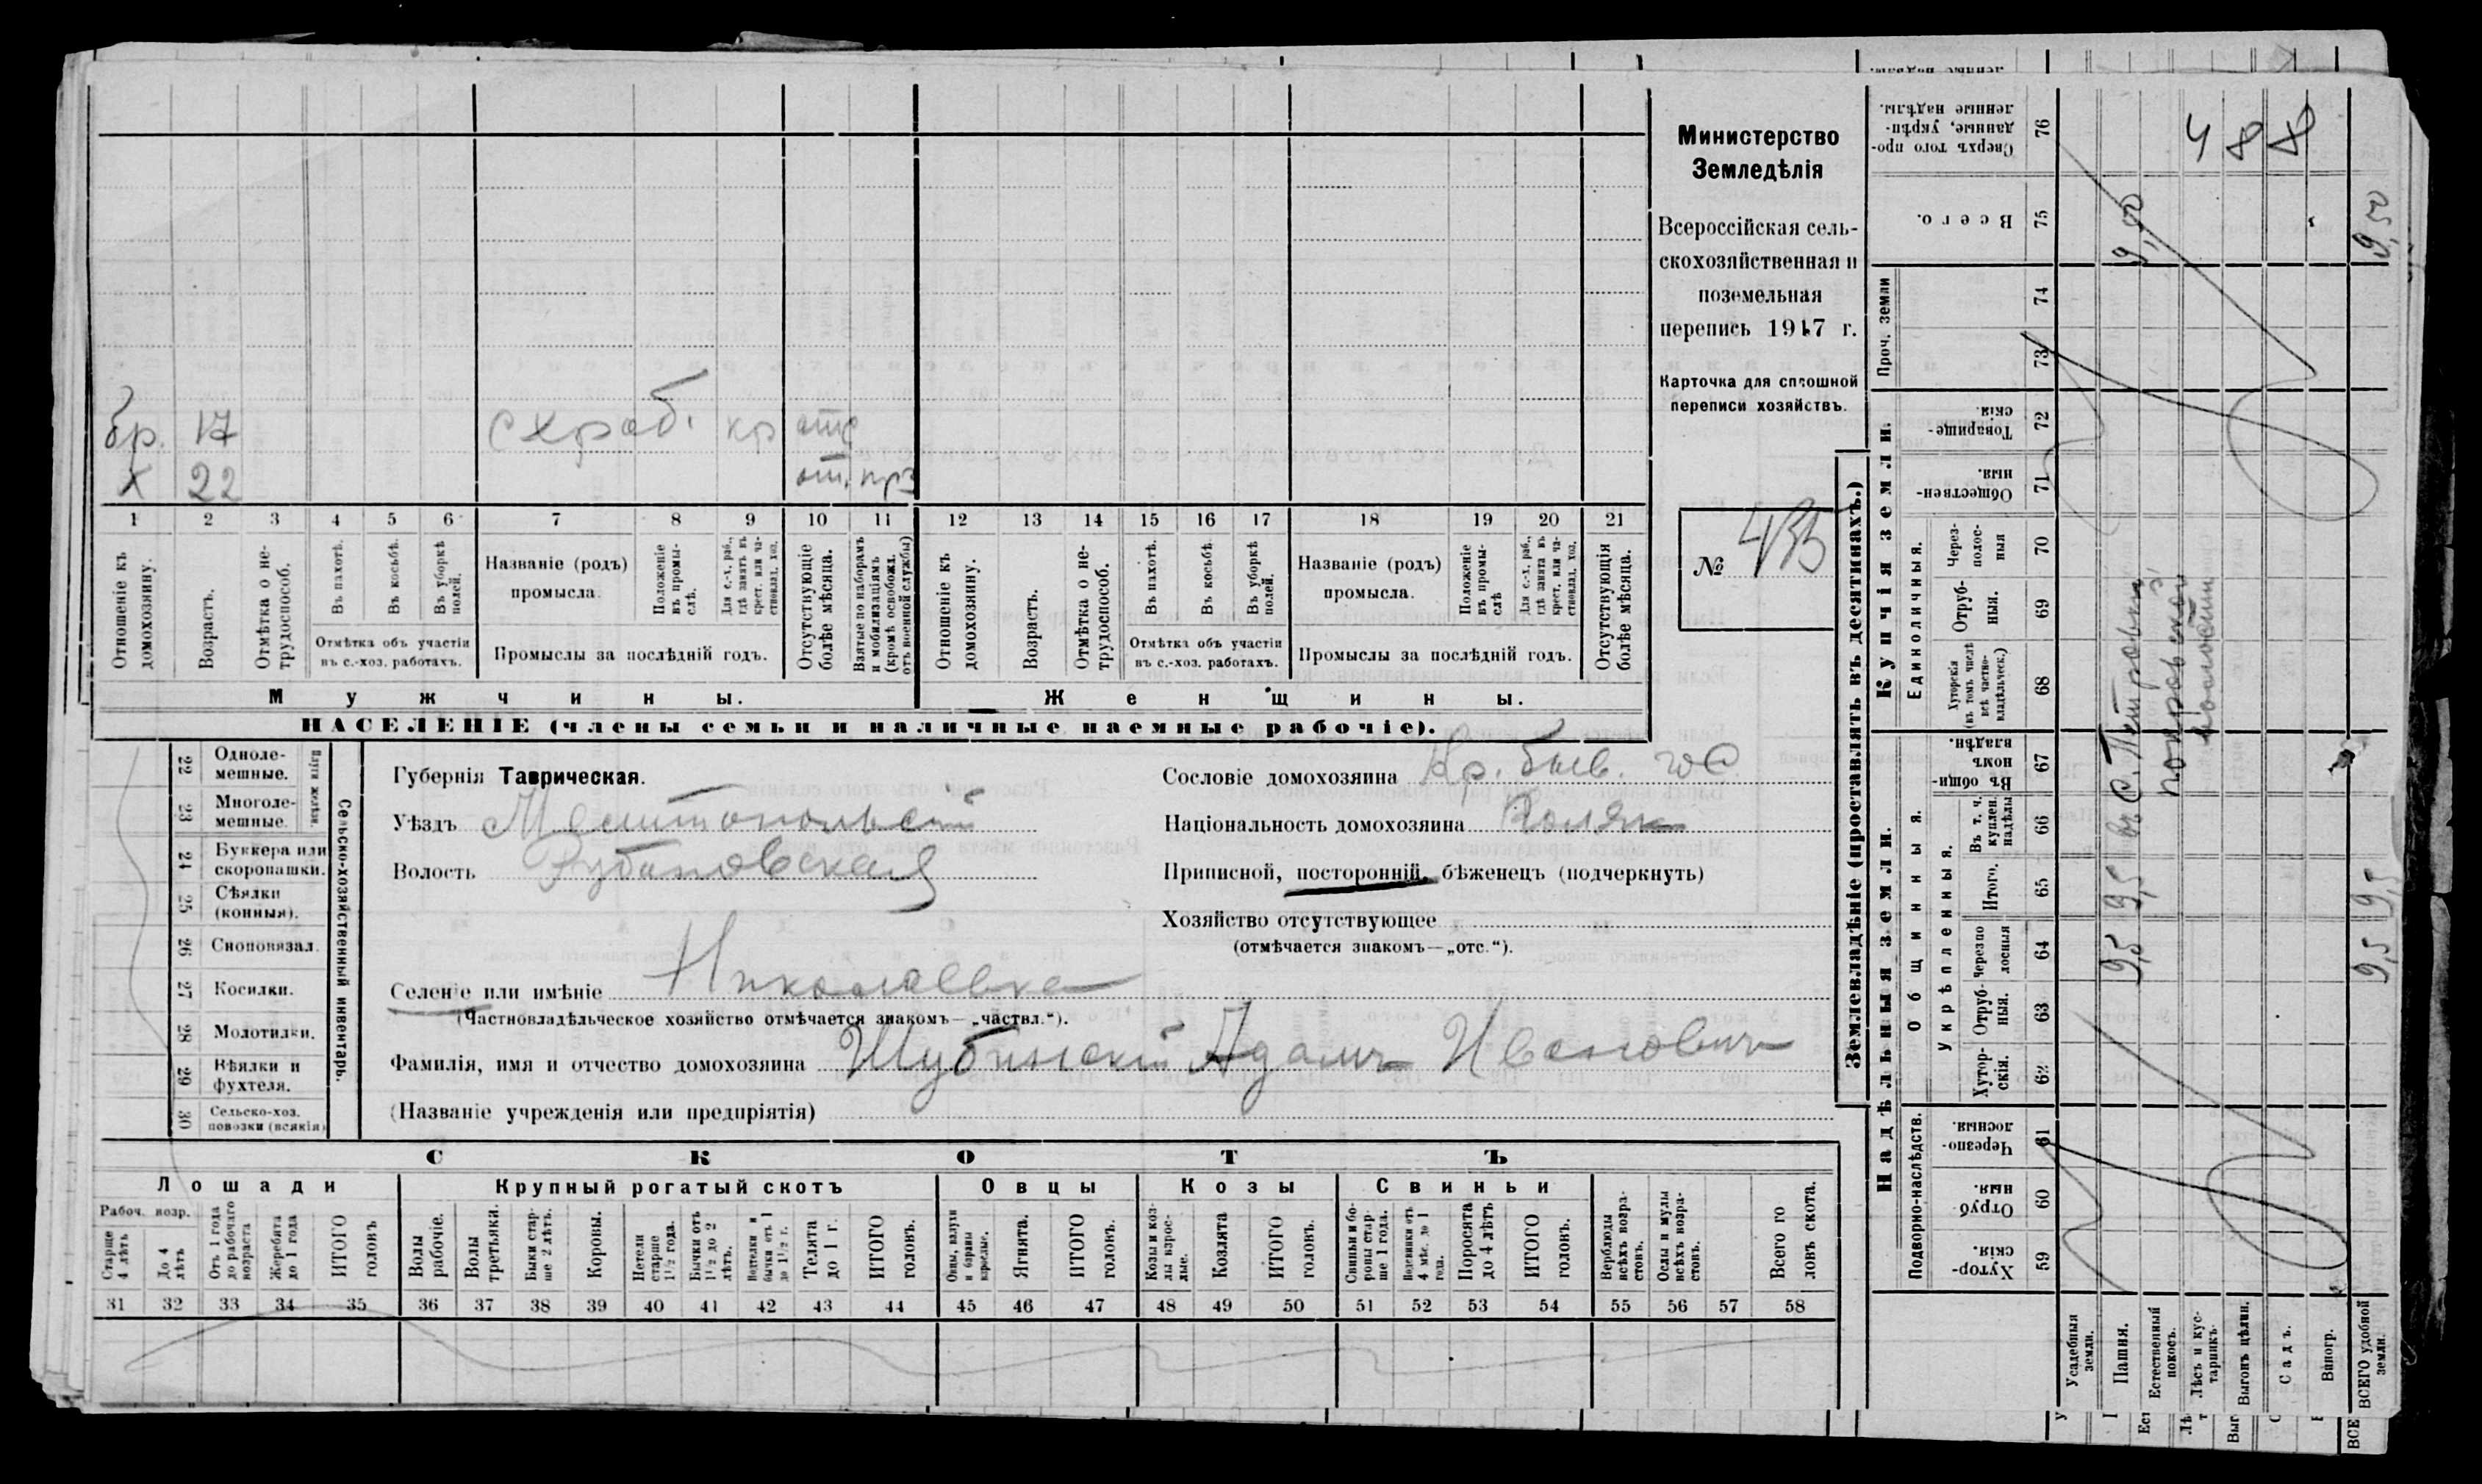 бр. 17 схраб. кр отс
х 22 от. прз
1 2 3 4 5 6 7 8 9 10 11 12 13 14 15 16 17 18 19 20 21
Отношеніе къ домохозяину.
Возрастъ.
Отмѣтка о не-
трудоспособ.
Въ пахотѣ.
Въ косьбѣ.
Въ уборкѣ
полей.
Отмѣтка объ участіи
въ с.-хоз. работахъ.
Названіе (родъ)
промысла.
Положеніе
въ промы-
слѣ.
Для с.-х. раб.,
гдѣ занятъ въ
крест. или ча-
стновлад. хоз.
Промыслы за послѣдній годъ.
Отсутствующіе
болѣе мѣсяца.
Взятые по наборамъ
и мобилизаціямъ
(кромѣ освобожд.
отъ военной службы)
Отношеніе къ
домохозяину.
Возрастъ.
Отмѣтка о не-
трудоспособ.
Въ пахотѣ.
Въ косьбѣ.
Въ уборкѣ
полей.
Отмѣтка объ участіи
въ с.-хоз. работахъ.
Названіе (родъ)
промысла.
Положеніе
въ промы-
слѣ
Для с.-х. раб.,
гдѣ занята въ
крест. или ча-
стновлад. хоз.
Промыслы за послѣдній годъ.
Отсутствующія
болѣе мѣсяца.
Мужчины.
Женщины.
НАСЕЛЕНІЕ (члены семьи и наличные наемные рабочіе).
Министерство
Земледѣлія
Всероссійская сель-
скохозяйственная и
поземельная
перепись 1917 г.
Карточка для сплошной
переписи хозяйствъ.
№
22 Одноле-
мешные.
23 Многоле-
мешные.
Плуги желѣзн.
24 Буккера или
скоропашки.
25 Сѣялки
(конныя).
26 Сноповязал.
27 Косилки.
28 Молотилки.
29 Вѣялки и
фухтеля.
30 Сельско-хоз.
повозки (всякія)
Сельско-хозяйственный инвентарь.
Губернія Таврическая.
Уѣздъ Мелитопольскій
Волость Рубановская
Селеніе или имѣніе Николаевка
(Частновладѣльческое хозяйство отмѣчается знакомъ—„частвл.“).
Фамилія, имя и отчество домохозяина Шубинскій Адамъ Ивановичъ
(Названіе учрежденія или предпріятія)
Сословіе домохозяина Кр. быв.
Національность домохозяина Поляк
Приписной, посторонній, бѣженецъ (подчеркнуть)
Хозяйство отсутствующее
(отмѣчается знакомъ—„отс.“).
СКОТЪ
Лошади
Крупный рогатый скотъ
Овцы
Козы
Свиньи
Рабоч. возр.
Старше
4 лѣтъ
До 4
лѣтъ
Отъ 1 года
до рабочаго
возраста
Жеребята
до 1 года
ИТОГО
головъ
Волы
рабочіе.
Волы
третьяки.
Быки стар-
ше 2 лѣтъ.
Коровы.
Нетели
старше
1½ года.
Бычки отъ
1½ до 2
лѣтъ.
Нетелки и
бычки отъ 1
до 1½ г.
Телята
до 1 г.
ИТОГО
головъ.
Овцы, валухи
и бараны
взрослые.
Ягнята.
ИТОГО
головъ.
Козы и коз-
лы взрос-
лые.
Козлята
ИТОГО
головъ.
Свиньи и бо-
ровы стар-
ше 1 года.
Подсвинки отъ
4 мѣс. до 1
года.
Поросята
до 4 лѣтъ
ИТОГО
головъ.
Верблюды
всѣхъ возра-
стовъ.
Ослы и мулы
всѣхъ возра-
стовъ.
Всего го
ловъ скота.
31 32 33 34 35 36 37 38 39 40 41 42 43 44 45 46 47 48 49 50 51 52 53 54 55 56 57 58
Землевладѣніе (проставлять въ десятинахъ.)
Надѣльныя земли.
Купчія земли.
Подворно-наслѣдств.
Общинныя.
Укрѣпленныя.
Единоличныя.
Проч. земли
Сверхъ того про-
данные, укрѣп-
ленные надѣлы.
76
Всего.
75
74
73
Товарище-
скія.
72
Обществен-
ныя.
71
Через-
полос-
ныя
70
Отруб-
ныя.
69
Хуторскія
(въ томъ числѣ
всѣ частно-
владѣльческ.)
68
Въ общи-
номъ
владѣн.
67
Въ т. ч.
куплен.
надѣлы
66
Итого.
65
Черезпо
лосныя
64
Отруб-
ныя.
63
Хутор-
скія.
62
Черезпо-
лосныя.
61
Отруб
ныя.
60
Хутор-
скія.
59
Усадебныя
земли.
Пашня.
Естественный
покосъ.
Лѣсъ и кус-
тарникъ.
Выгонъ цѣлин.
Садъ.
Виногр.
ВСЕГО удобной
земли.
4 8 8
9,50
9,5 9,5
9,5 9,5